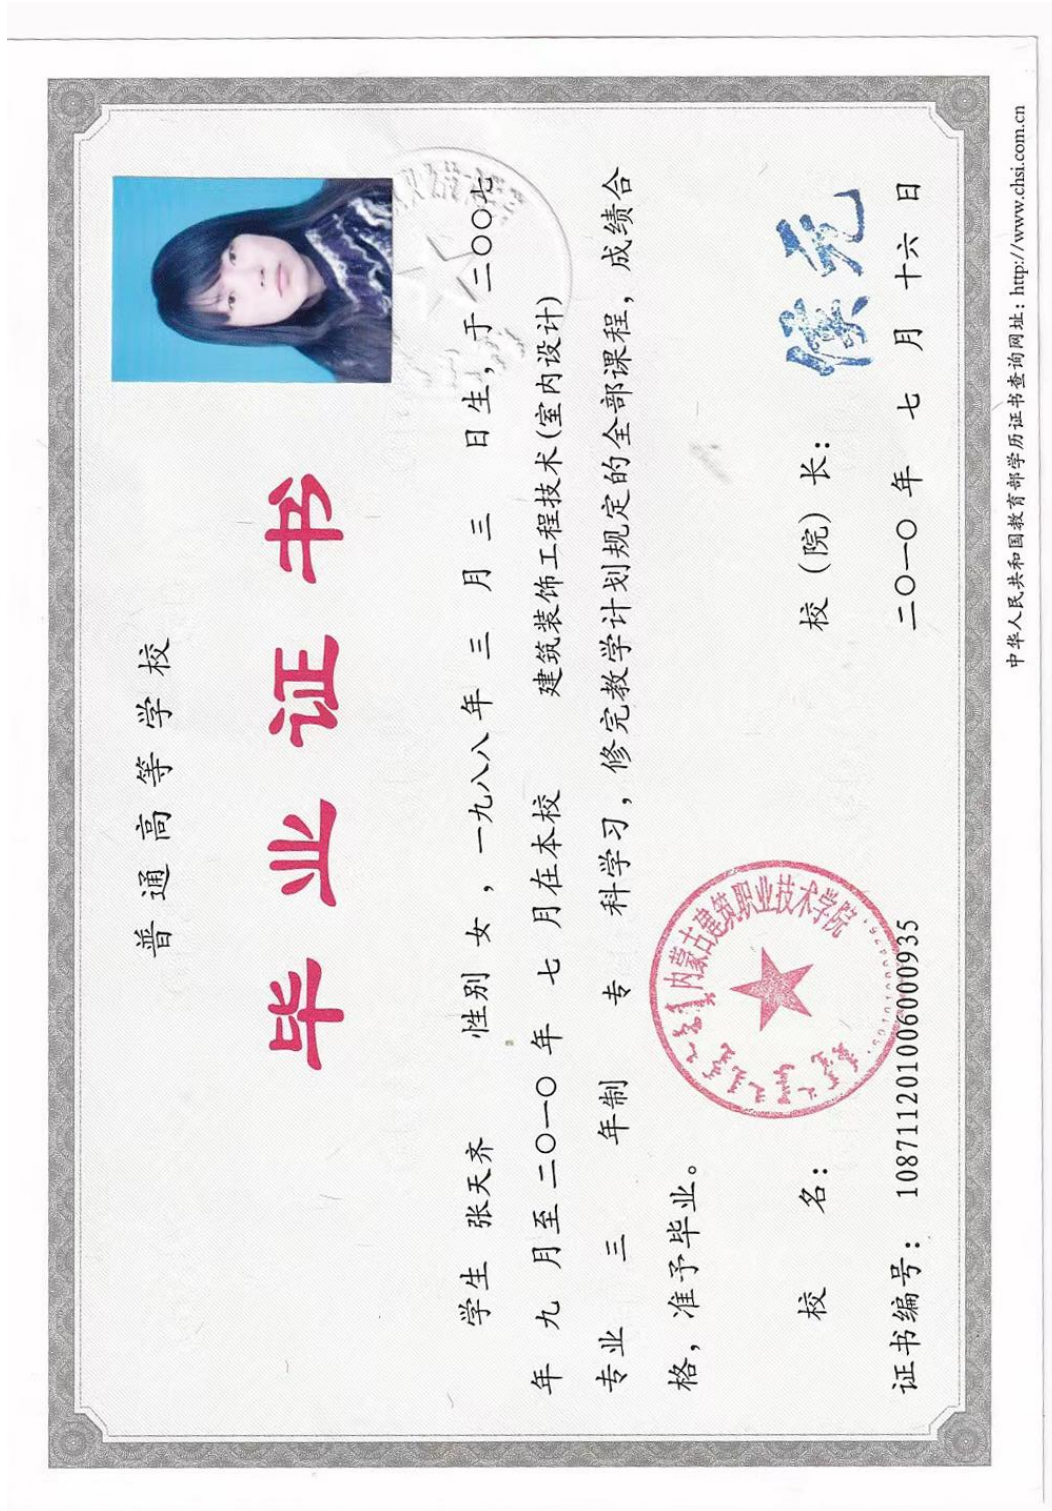 普通高等学校
毕业证书
学生 张天齐 性别 女，一九八八年 三 月 三 日生，于二〇〇七
年 九 月至二〇一〇年 七 月在本校 建筑装饰工程技术(室内设计)
专业 三 年制 专 科学习，修完教学计划规定的全部课程，成绩合
格，准予毕业。
内蒙古建筑职业技术学院
校 名： 校（院）长：
证书编号： 108711201006000935 二〇一〇年 七 月 十六 日
中华人民共和国教育部学历证书查询网址：http://www.chsi.com.cn